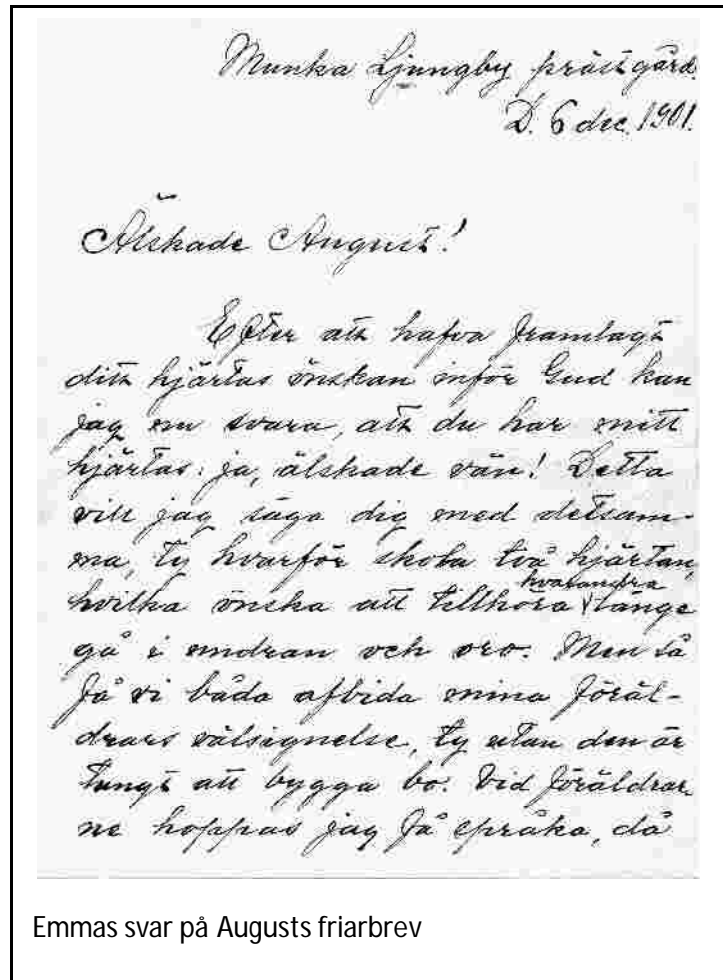 Munka Ljungby prästgård.
D. 6 dec. 1901.
Älskade August!
Efter att hafva framlagt
ditt hjärtas önskan inför Gud kan
jag nu svara, att du har mitt
hjärtas: ja, älskade vän! Detta
vill jag säga dig med detsam-
ma, ty hvarför skola två hjärtan,
hvilka önska att tillhöra hvarandra länge
gå i undran och oro. Men så
få vi båda afbida mina föräl-
drars välsignelse, ty utan den är
tungt att bygga bo. Vid föräldrar-
ne hoppas jag få språka, då
Emmas svar på Augusts friarbrev